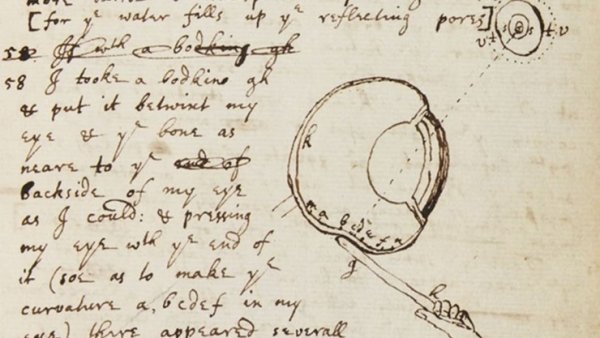 [for yᵉ water fills up yᵉ reflecting pores]
58 If wth a bodkine gh
58 I tooke a bodkine gh
& put it betwixt my
eye & yᵉ bone as
neare to yᵉ end of
backside of my eye
as I could: & pressing
my eye wth yᵉ end of
it (soe as to make yᵉ
curvature a, bcdef in my
eye) there appeared severall